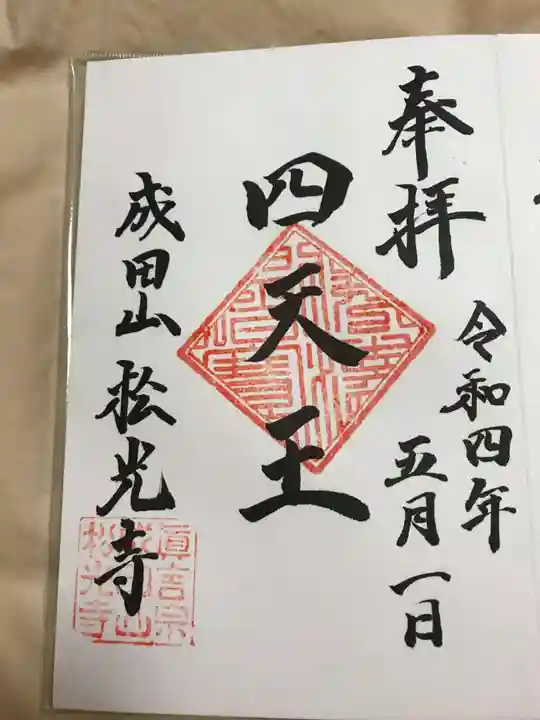 奉拝
令和四年
五月一日
四天王
成田山 松光寺
眞言宗
成田山
松光寺